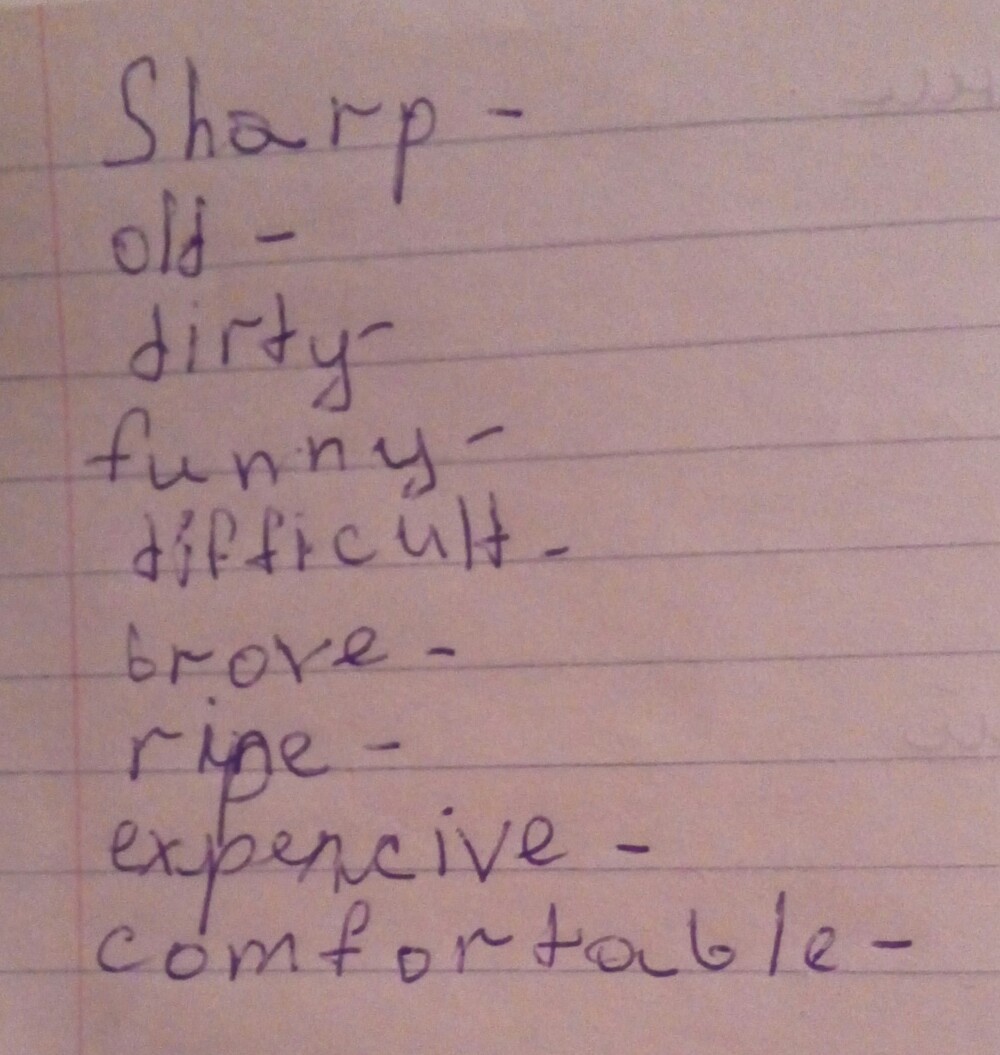 Sharp -
old -
dirty -
funny -
difficult -
brove -
ripe -
expencive -
comfortable -